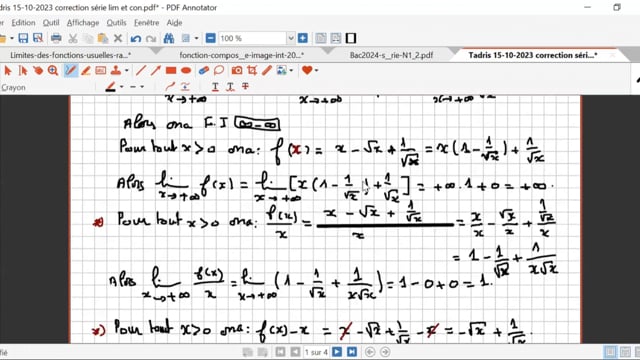 dris 15-10-2023 correction série lim et con.pdf* - PDF Annotator
Édition Outil Affichage Outils Fenêtre Aide
100 %
Limites-des-fonctions-usuelles-ra...* fonction-compos__e-image-int-20...* Bac2024-s__rie-N1_2.pdf Tadris 15-10-2023 correction série...*
Crayon
x→+∞ x→+∞ x→+∞
Alors on a F.I ∞-∞
Pour tout x>0 on a: f(x) = x - √x + 1/√x = x(1 - 1/√x) + 1/√x
Alors lim x→+∞ f(x) = lim x→+∞ [x(1 - 1/√x) + 1/√x] = +∞.1+0 = +∞.
*) Pour tout x>0 on a: f(x)/x = (x - √x + 1/√x)/x = x/x - √x/x + (1/√x)/x
= 1 - 1/√x + 1/(x√x)
Alors lim x→+∞ f(x)/x = lim x→+∞ (1 - 1/√x + 1/(x√x)) = 1-0+0 = 1.
*) Pour tout x>0 on a: f(x)-x = x - √x + 1/√x - x = -√x + 1/√x.
ifié 1 sur 4